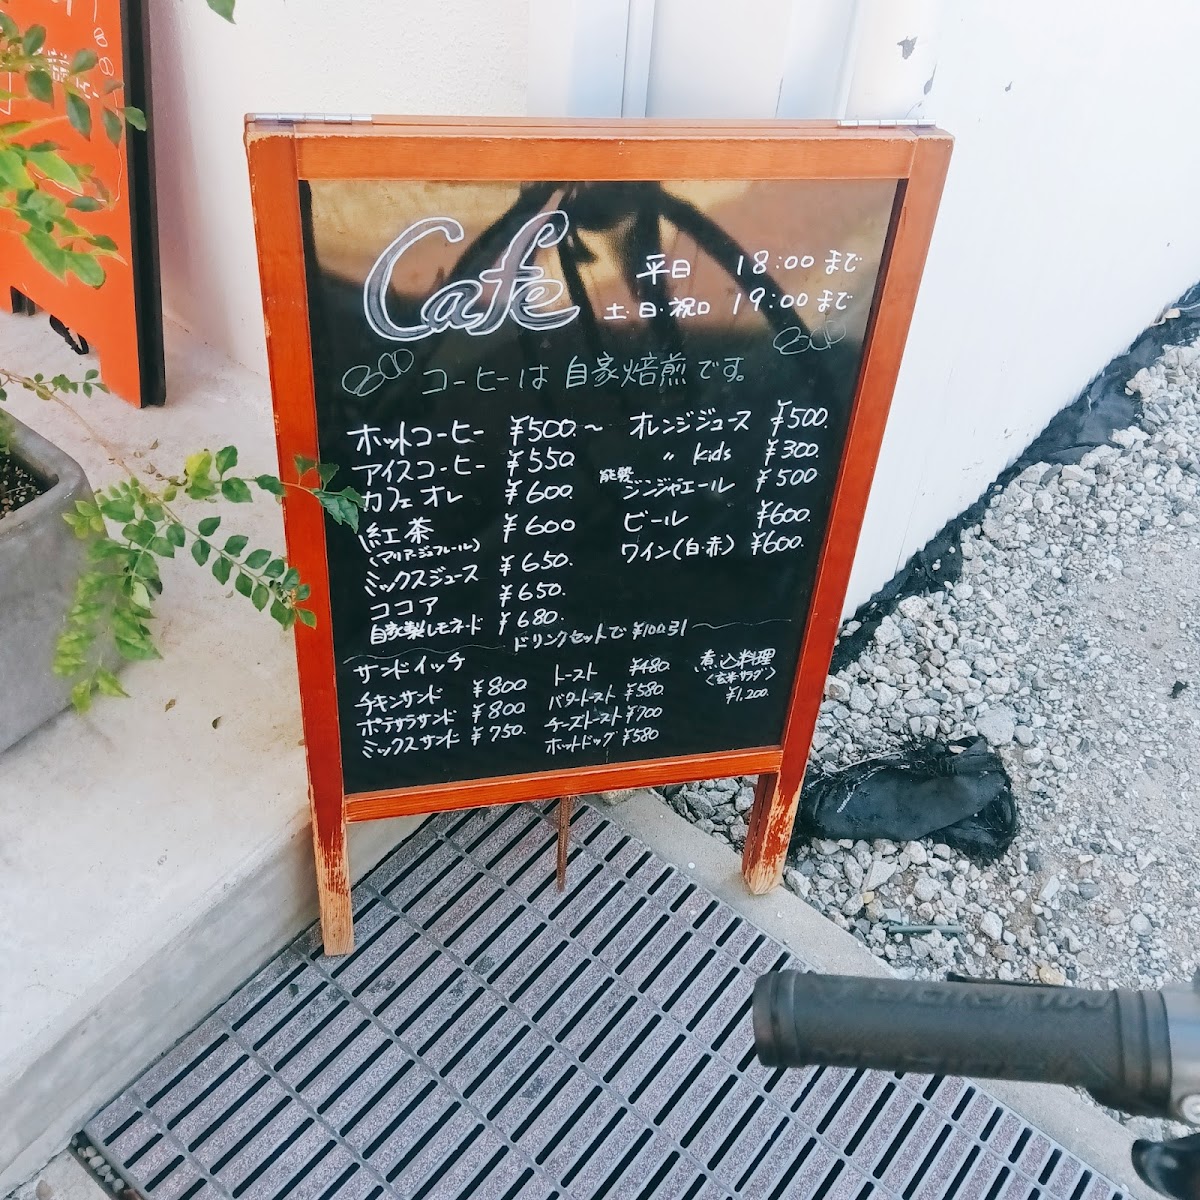 Cafe
平日 18:00 まで
土・日・祝日 19:00 まで
コーヒーは自家焙煎です。
ホットコーヒー ¥500.~
アイスコーヒー ¥550.
カフェオレ ¥600
紅茶 ¥600
(マリアージュフレール)
ミックスジュース ¥650.
ココア ¥650.
自家製レモネード ¥680.
オレンジジュース ¥500.
〃 kids ¥300.
能勢ジンジャエール ¥500
ビール ¥600.
ワイン(白・赤) ¥600.
ドリンクセットで ¥100引
サンドイッチ
チキンサンド ¥800
ポテサラサンド ¥800
ミックスサンド ¥750.
トースト ¥480.
バタートースト ¥580.
チーズトースト ¥700
ホットドッグ ¥580
煮込料理
(玄米サラダ)
¥1,200.
MERIDA